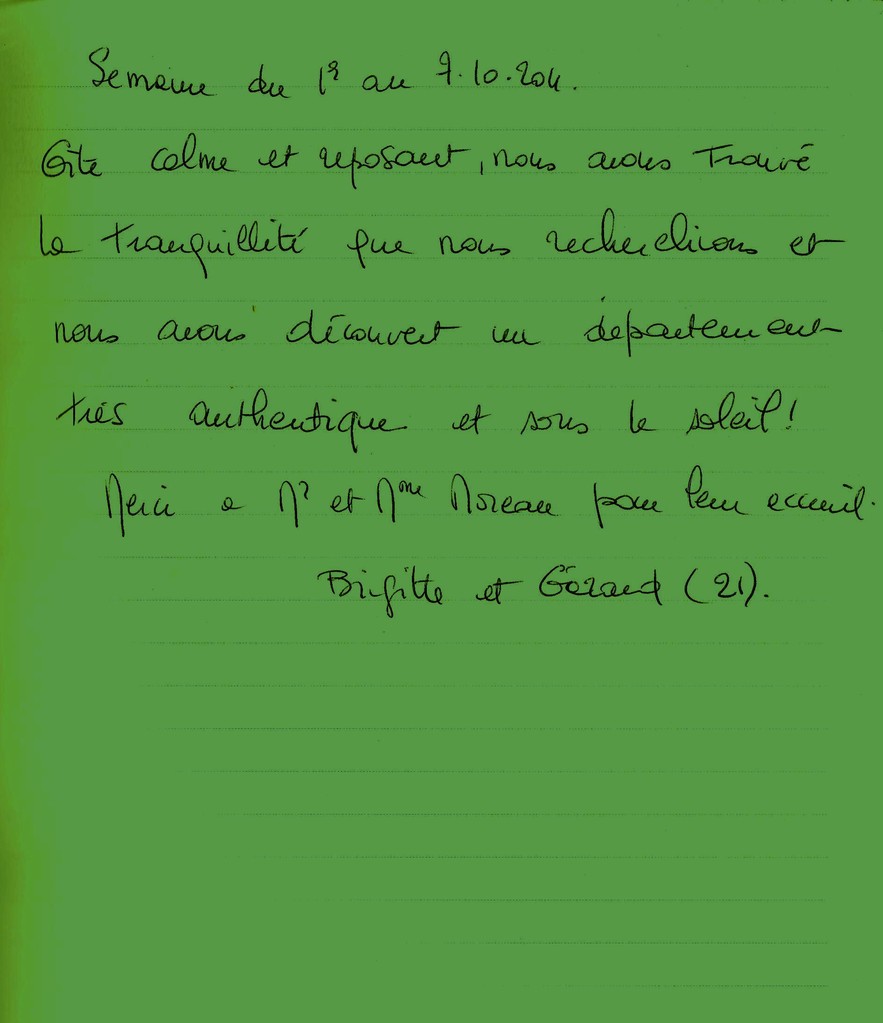 Semaine du 1er au 7.10.2011.
Gîte calme et reposant, nous avons trouvé
la tranquillité que nous recherchions et
nous avons découvert un département
très authentique et sous le soleil!
Merci a Mr et Mme Moreau pour leur accueil.
Brigitte et Gérard (21).